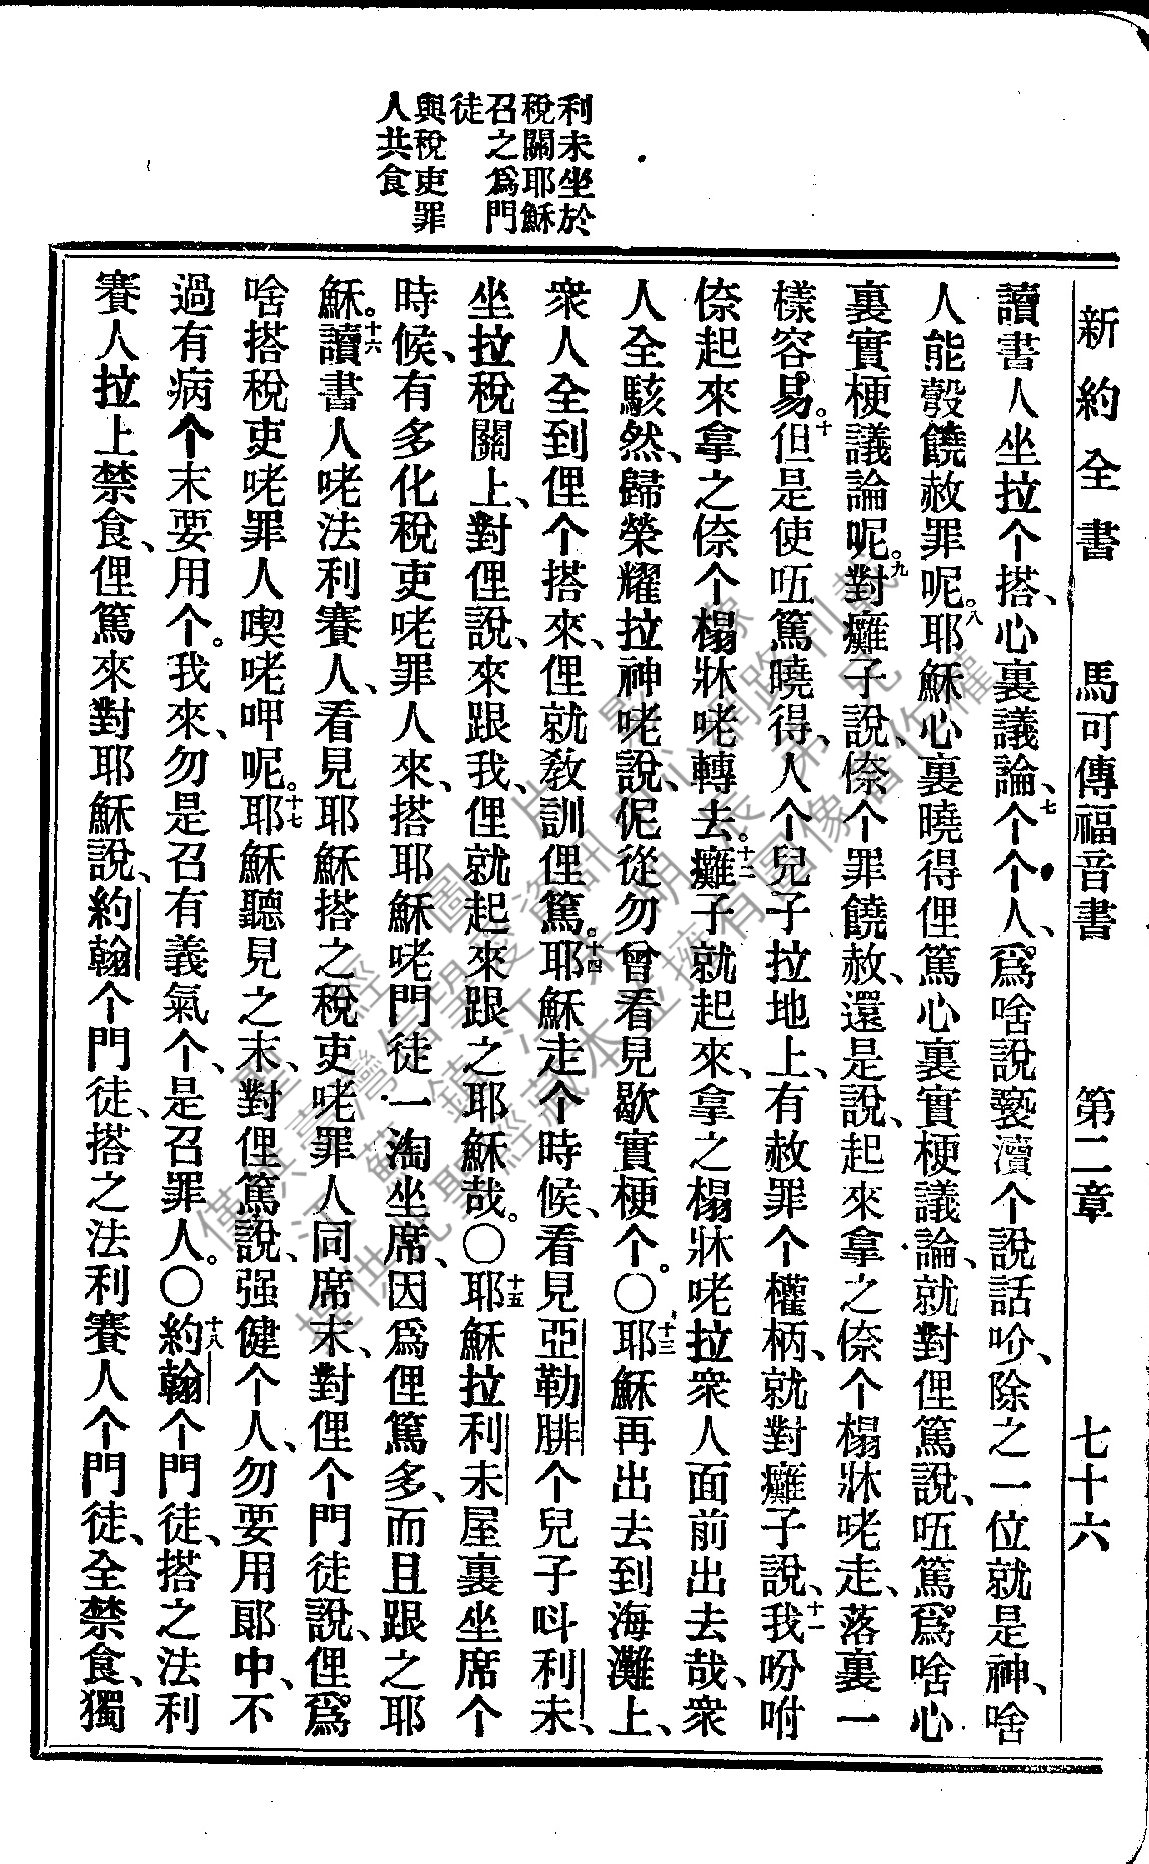 新約全書　馬可傳福音書　第二章　七十六
利未坐於
稅關耶穌
召之爲門
徒
與稅吏罪
人共食
讀書人坐拉个搭、心裏議論、七个个人、爲啥說褻瀆个說話吤、除之一位就是神、啥
人能彀饒赦罪呢。八耶穌心裏曉得俚篤心裏實梗議論、就對俚篤說、㕶篤爲啥心
裏實梗議論呢。九對癱子說、倷个罪饒赦、還是說、起來拿之倷个榻牀咾走、落裏一
樣容易。十但是使㕶篤曉得、人个兒子拉地上、有赦罪个權柄、就對癱子說、十一我吩咐
倷起來拿之倷个榻牀咾轉去。十二癱子就起來、拿之榻牀咾拉衆人面前出去哉、衆
人全駭然、歸榮耀拉神咾說、伲從勿曾看見歇實梗个。〇十三耶穌再出去到海灘上、
衆人全到俚个搭來、俚就敎訓俚篤。十四耶穌走个時候、看見亞勒腓个兒子呌利未、
坐拉稅關上、對俚說、來跟我、俚就起來跟之耶穌哉。〇十五耶穌拉利未屋裏坐席个
時候、有多化稅吏咾罪人來、搭耶穌咾門徒一淘坐席、因爲俚篤多、而且跟之耶
穌。十六讀書人咾法利賽人、看見耶穌搭之稅吏咾罪人同席末、對俚个門徒說、俚爲
啥搭稅吏咾罪人喫咾呷呢。十七耶穌聽見之末、對俚篤說、强健个人、勿要用郎中、不
過有病个末要用个。我來、勿是召有義氣个、是召罪人。〇十八約翰个門徒、搭之法利
賽人拉上禁食、俚篤來對耶穌說、約翰个門徒、搭之法利賽人个門徒、全禁食、獨